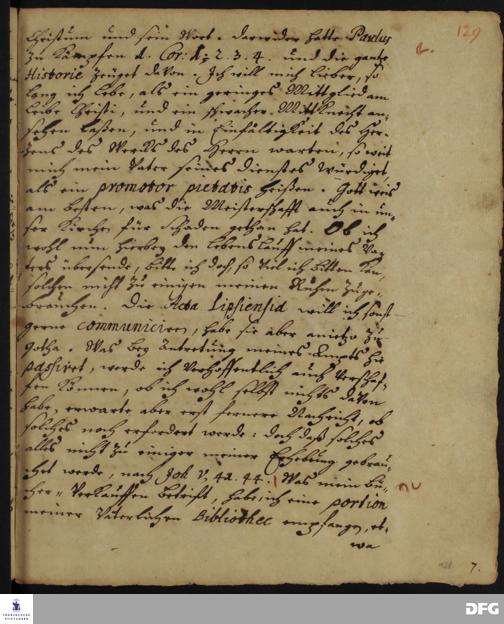 129
Christum und sein Wort. Darwider hatte Paulus
zu kämpfen 1. Cor: 1. 2. 3. 4. und die gantze
Historie zeuget davon. Ich will mich lieber, so
lang ich lebe, als ein geringes Mittglied am
Leibe Christi, und ein schwacher Mitt Knecht an-
sehen laßen, und in Einfältigkeit des Her-
zens des Wercks des Herrn warten, so weit
mich mein Vater seines Dienstes würdiget
als ein promotor pietatis heißen. Gott weis
am besten, was die Meisterschafft auch in un-
ser Kirche für Schaden gethan hat. Ob ich
wohl nun hierbey den Lebenslauff meines Va-
ters übersende, bitte ich doch, so viel ich bitten kan,
solchen nicht zu einigen meinen Ruhm zuge-
brauchen. Die Acta Lipsiensia will ich sonst
gerne communiciren, habe sie aber anietzo zu
Gotha. Was bey Antretung meines Ampts hie
passiret, werde ich verhoffentlich auch verschaf-
fen können, ob ich wohl selbst nichts davon
habe, erwarte aber erst fernere Nachricht, ob
solches noch erfordert werde: doch daß solches
alles nicht zu einiger meiner Erhebung gebrau-
chet werde, nach Joh V, 42. 44. Was mein Bü-
cher-Verkauffen betrift, habe ich eine portion
meiner Väterlichen Bibliothec empfangen, et-
wa
7.
FRANCKESCHE STIFTUNGEN
DFG